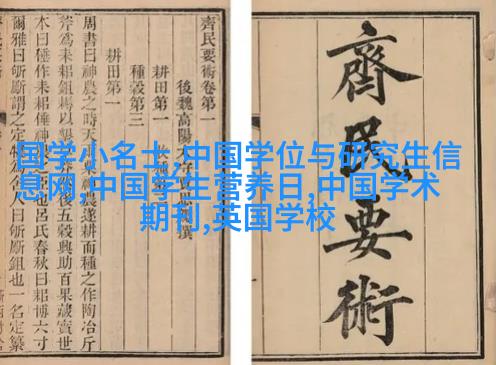 齊民要術
齊民要術卷第一
後魏高陽思勰撰
耕田第一
種穀第三
耕田第一
周書曰神農之時天農遂耕而種之作陶冶斤
斧爲耒耜鉏耨以墾後五穀興助百果藏實世
本曰倕作耒耜倕神也呂氏春秋曰耜博六寸
爾雅曰斪斸謂之定爲舍人曰斪斸鉏也一名定纂
国学小名士,中国学位与研究生信
息网,中国学生营养日,中国学术
期刊,英国学校